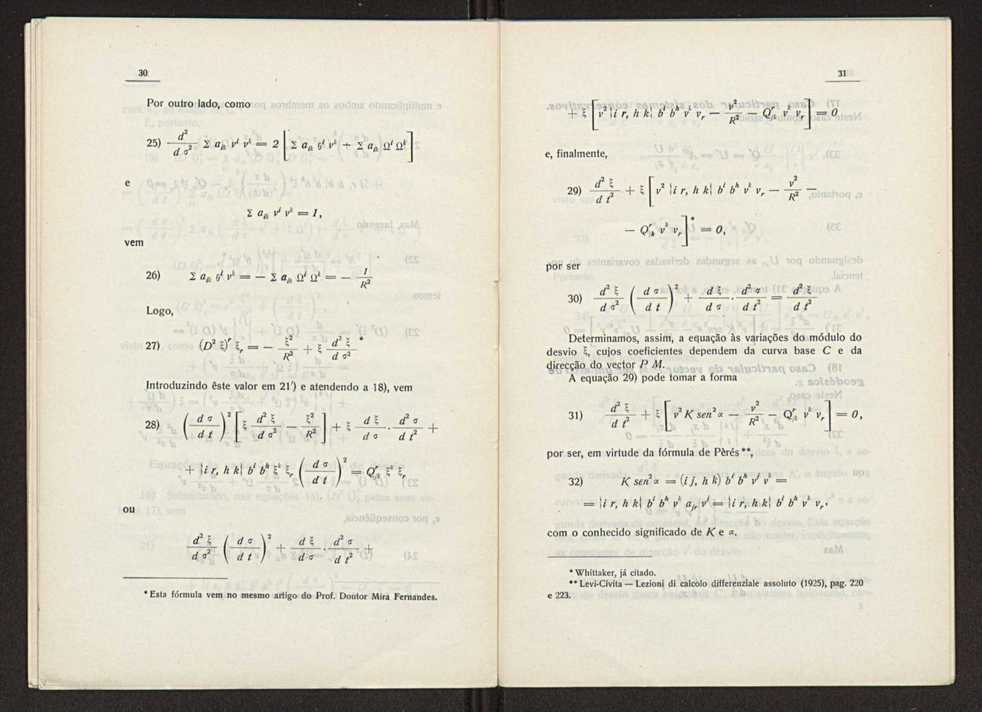 30
Por outro lado, como
25) d²/dσ² Σ aᵢₖ νⁱ νᵏ = 2 [Σ aᵢₖ θⁱ νᵏ + Σ aᵢₖ Ωⁱ Ωᵏ]
e
Σ aᵢₖ νⁱ νᵏ = 1,
vem
26) Σ aᵢₖ θⁱ νᵏ = — Σ aᵢₖ Ωⁱ Ωᵏ = — 1/R²
Logo,
27) (D² ξ)ʳ ξᵣ = — ξ²/R² + ξ d² ξ/d σ² *
Introduzindo êste valor em 21') e atendendo a 18), vem
28) (d σ/d t)² [ξ d² ξ/d σ² — ξ²/R²] + ξ d ξ/d σ · d² σ/d t² +
+ {i r, h k} bⁱ bʰ ξᵏ ξᵣ (d σ/d t)² = Qʳ|ₖ ξᵏ ξᵣ
ou
d² ξ/d σ² (d σ/d t)² + d ξ/d σ · d² σ/d t² +
* Esta fórmula vem no mesmo artigo do Prof. Doutor Mira Fernandes.
31
+ ξ [v² {i r, h k} bⁱ bʰ νᵏ νᵣ — v²/R² — Qʳ|ₖ νᵏ νᵣ] = 0
e, finalmente,
29) d² ξ/d t² + ξ [v² {i r, h k} bⁱ bʰ νᵏ νᵣ — v²/R² —
— Qʳ|ₖ νᵏ νᵣ]* = 0,
por ser
30) d² ξ/d σ² (d σ/d t)² + d ξ/d σ · d² σ/d t² = d² ξ/d t²
Determinamos, assim, a equação às variações do módulo do
desvio ξ, cujos coeficientes dependem da curva base C e da
direcção do vector P M.
A equação 29) pode tomar a forma
31) d² ξ/d t² + ξ [v² K sen² α — v²/R² — Qʳ|ₖ νᵏ νᵣ] = 0,
por ser, em virtude da fórmula de Pèrés **,
32) K sen² α = (i j, h k) bⁱ bʰ νʲ νᵏ =
= {i r, h k} bⁱ bʰ νᵏ aⱼᵣ νʲ = {i r, h k} bⁱ bʰ νᵏ νᵣ,
com o conhecido significado de K e α.
* Whittaker, já citado.
** Levi-Civita — Lezioni di calcolo differenziale assoluto (1925), pag. 220
e 223.